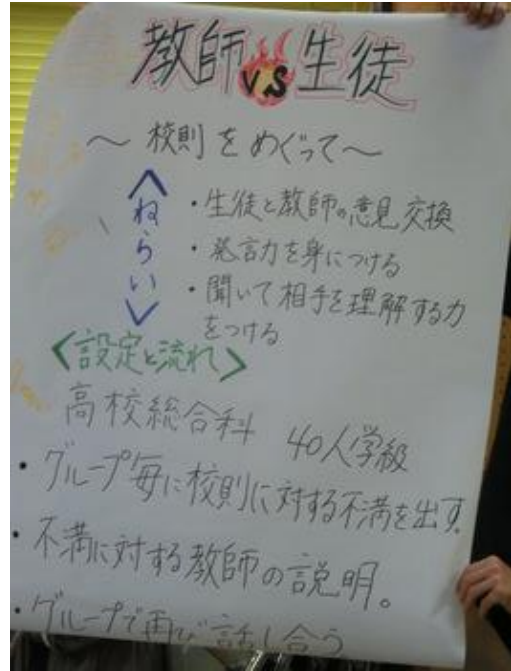 教師vs生徒
〜校則をめぐって〜
<ねらい>
・生徒と教師の意見交換
・発言力を身につける
・聞いて相手を理解する力
をつける
<設定と流れ>
高校総合科 40人学級
・グループ毎に校則に対する不満を出す。
・不満に対する教師の説明。
・グループで再び話し合う